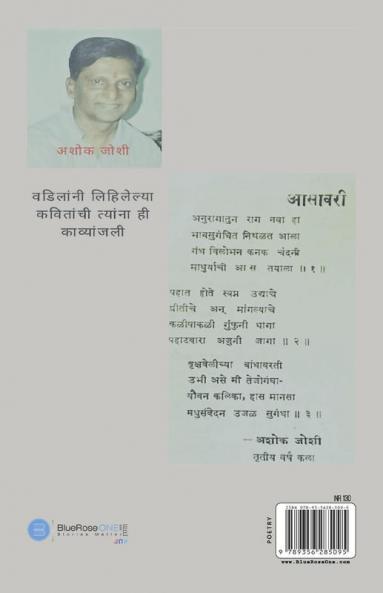 अशोक जोशी
वडिलांनी लिहिलेल्या
कवितांची त्यांना ही
काव्यांजली
आसावरी
अनुरागातुन राग नवा हा
भावसुगंधित निथळत आला
गंध विलोभन कनक चंदनी
माधुर्याची आस तयाला ॥ १ ॥
पहात होते स्वप्न उद्याचे
प्रीतीचे अन् मांगल्याचे
कळीपाकळी गुंफुनी धागा
पहाटवारा अजुनी जागा ॥ २ ॥
वृक्षवेलीच्या बांधावरती
उभी असे मी तेजोगंधा-
यौवन कलिका, हास मानसा
मधुसंवेदन उजळ सुगंधा ॥ ३ ॥
— अशोक जोशी
तृतीय वर्ष कला
NR 130
POETRY
9 789356 285095
www.BlueRoseOne.com
BlueRoseONE
Stories Matter